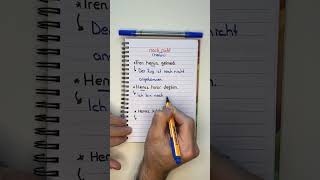 noch nicht
(Henüz)
*Tren henüz gelmedi.
Der Zug ist noch nicht
angekommen.
*Henüz hazır değilim.
Ich bin noch
*Henüz